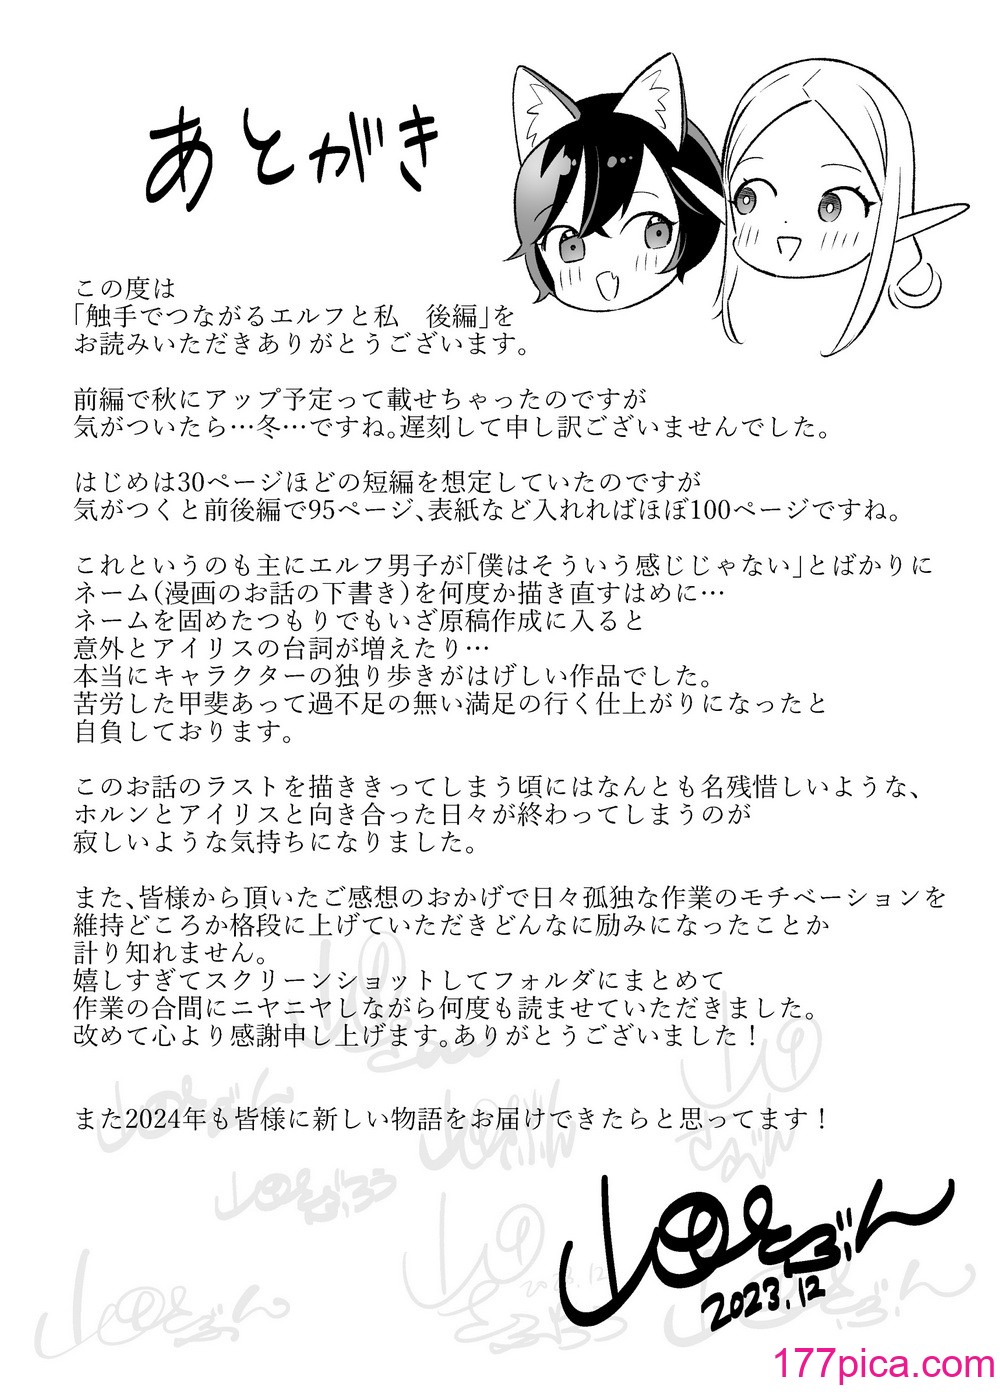 あとがき
この度は
「触手でつながるエルフと私　後編」を
お読みいただきありがとうございます。
前編で秋にアップ予定って載せちゃったのですが
気がついたら…冬…ですね。遅刻して申し訳ございませんでした。
はじめは30ページほどの短編を想定していたのですが
気がつくと前後編で95ページ、表紙など入れればほぼ100ページですね。
これというのも主にエルフ男子が「僕はそういう感じじゃない」とばかりに
ネーム(漫画のお話の下書き)を何度か描き直すはめに…
ネームを固めたつもりでもいざ原稿作成に入ると
意外とアイリスの台詞が増えたり…
本当にキャラクターの独り歩きがはげしい作品でした。
苦労した甲斐あって過不足の無い満足の行く仕上がりになったと
自負しております。
このお話のラストを描ききってしまう頃にはなんとも名残惜しいような、
ホルンとアイリスと向き合った日々が終わってしまうのが
寂しいような気持ちになりました。
また、皆様から頂いたご感想のおかげで日々孤独な作業のモチベーションを
維持どころか格段に上げていただきどんなに励みになったことか
計り知れません。
嬉しすぎてスクリーンショットしてフォルダにまとめて
作業の合間にニヤニヤしながら何度も読ませていただきました。
改めて心より感謝申し上げます。ありがとうございました！
また2024年も皆様に新しい物語をお届けできたらと思ってます！
2023.12
177pica.com